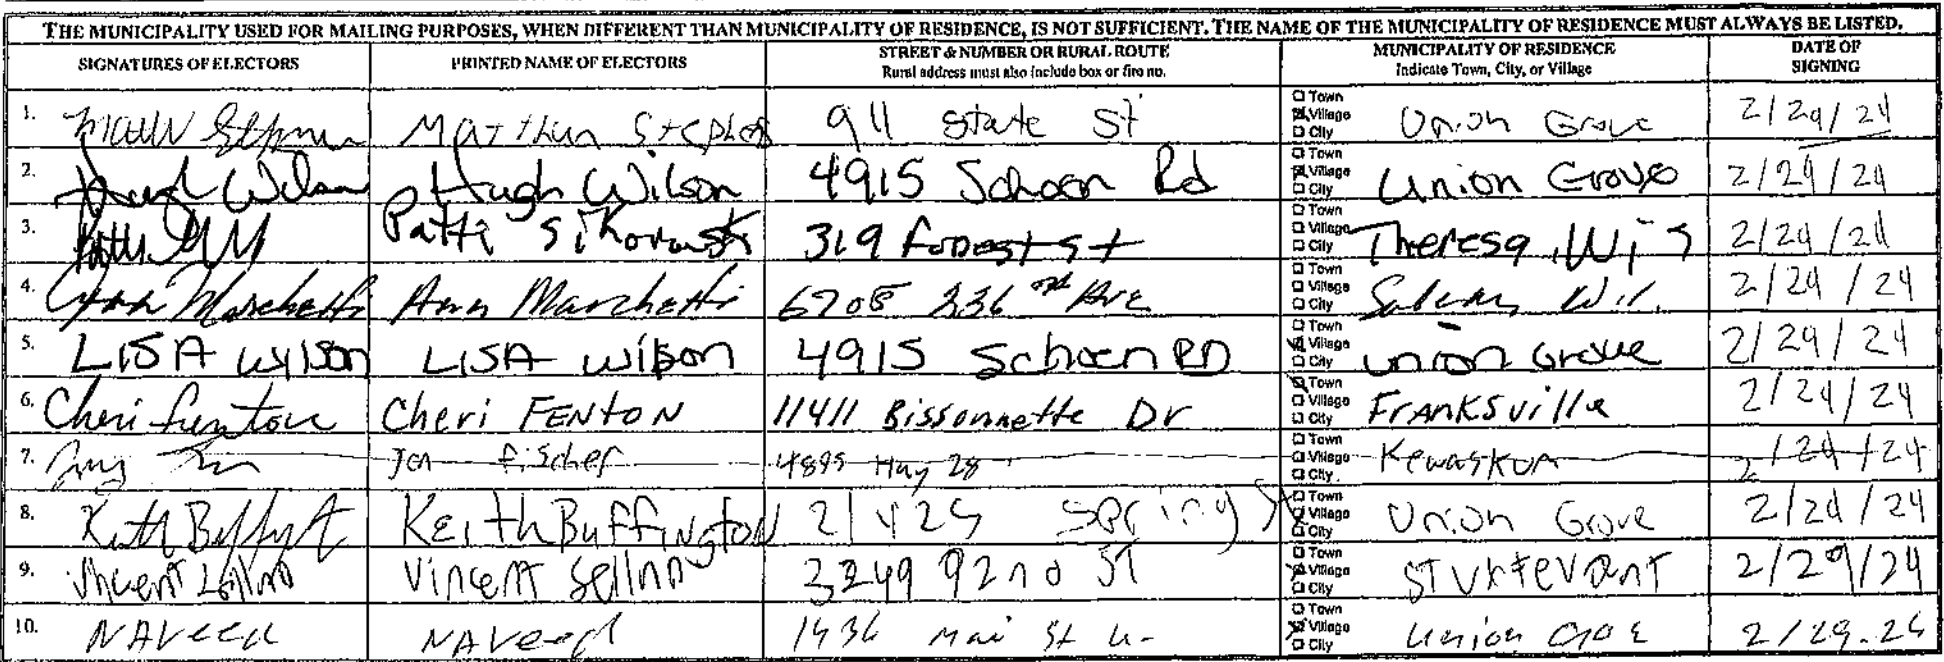 THE MUNICIPALITY USED FOR MAILING PURPOSES, WHEN DIFFERENT THAN MUNICIPALITY OF RESIDENCE, IS NOT SUFFICIENT. THE NAME OF THE MUNICIPALITY OF RESIDENCE MUST ALWAYS BE LISTED.
SIGNATURES OF ELECTORS PRINTED NAME OF ELECTORS STREET & NUMBER OR RURAL ROUTE MUNICIPALITY OF RESIDENCE DATE OF SIGNING
Rural address must also include box or fire no. Indicate Town, City, or Village
1. 911 State St Town Village City Union Grove 2/29/24
2. Hugh Wilson Hugh Wilson 4915 Schoen Rd Town Village City Union Grove 2/29/24
3. Patti 319 Forest St Town Village City Theresa, Wis 2/29/24
4. Ann Marchetti Ann Marchetti 6708 236 Ave Town Village City Wi. 2/29/24
5. LISA Wilson LISA Wilson 4915 Schoen RD Town Village City Union Grove 2/29/24
6. Cheri Fenton Cheri FENTON 11411 Bissonnette Dr Town Village City FRANKSville 2/29/24
7. Jon Fischer Hwy 28 Town Village City Kewaskum 2/29/24
8. KEith BuFFiNgtoN Spring St Town Village City Union Grove 2/29/24
9. Vincent 3249 92nd ST Town Village City STURTEVANT 2/29/24
10. NAVeed NAVeed Town Village City Union 2/29.24